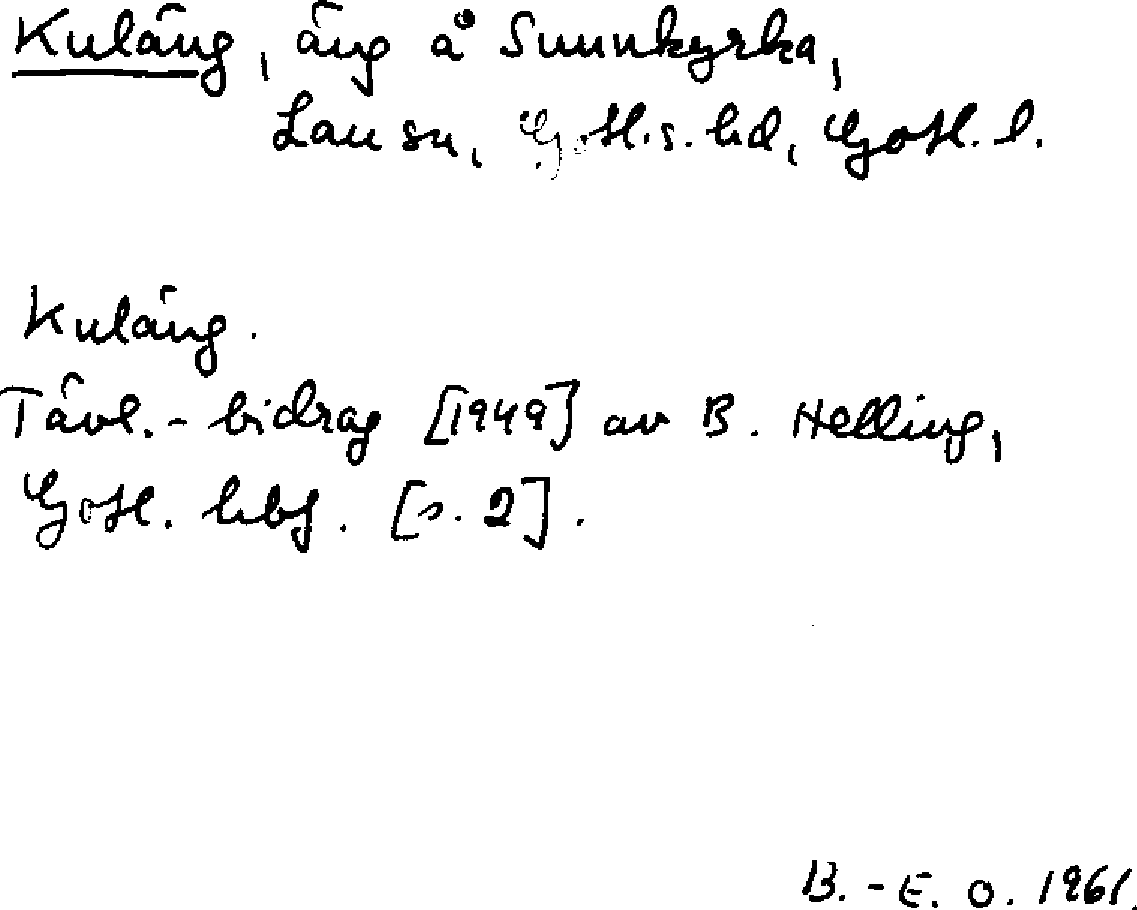 Kuläng, äng å Sunnkyrka,
Lau sn, Gotl. s. hd, Gotl. l.
Kuläng.
Tävl. - bidrag [1949] av B. Helling,
Gotl. hbf. [s. 2].
B. - E. O. 1961.